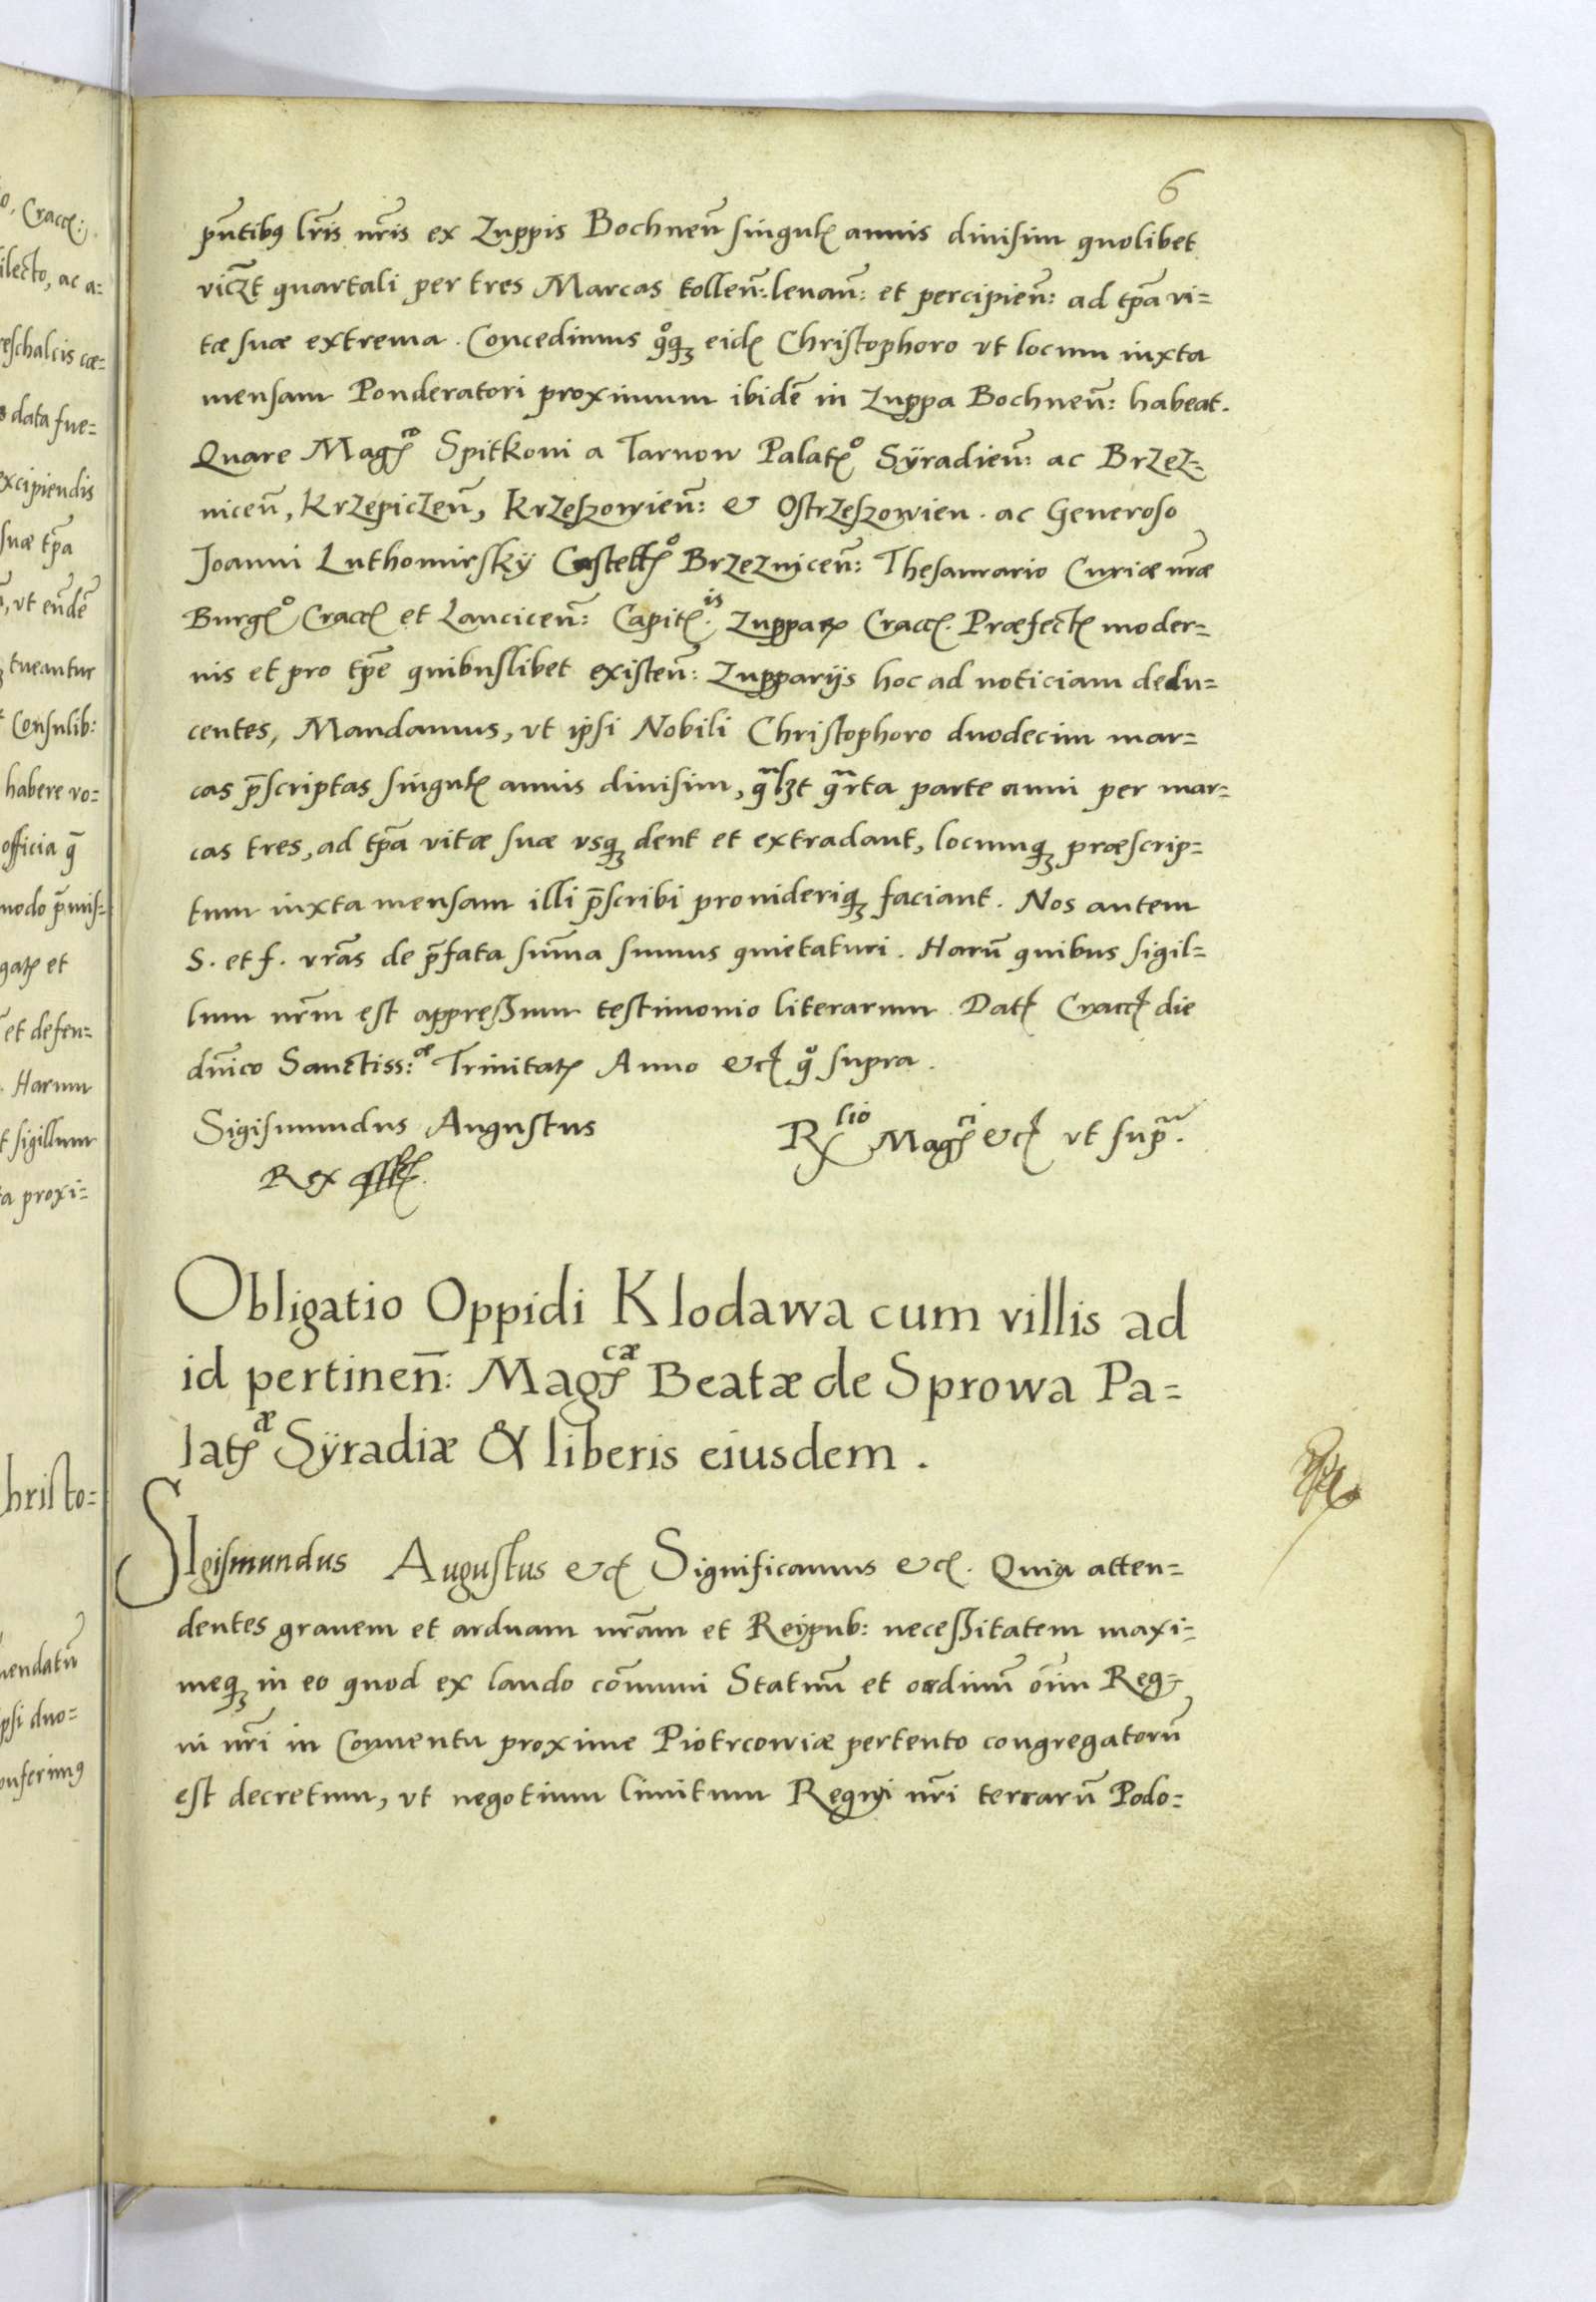 6
pn̄tibꝰ lr̄is nr̄is ex Zuppis Bochneñ singul̃ annis diuisim quolibet
vicꝫt quartali per tres Marcas tolleñ: leuañ: et percipieñ: ad tp̄a vi=
tæ suæ extrema. Concedimus qͦqꝫ eid̃ Christophoro vt locum iuxta
mensam Ponderatori proximum ibidē in Zuppa Bochneñ: habeat.
Quare Mag̃ᶜᵒ Spitkoni a Tarnow Palat̃ᵒ Sÿradieñ: ac Brzez=
niceñ, Krzepiczeñ, Krzeszowieñ: & Ostrzeszowien. ac Generoso
Joanni Luthomirskÿ Castell̃ᵒ Brzezniceñ: Thesaurario Curiæ nr̄æ
Burg̃ᵒ Cracc̃ et Lanciceñ: Capit̃.ⁱˢ Zuppaꝝ Cracc̃. Præfect̃ moder=
nis et pro tp̄e quibuslibet existeñ: Zupparijs hoc ad noticiam dedu=
centes, Mandamus, vt ipsi Nobili Christophoro duodecim mar=
cas p̄scriptas singul̃ annis diuisim, qᵃlꝫt qᵃrta parte anni per mar=
cas tres, ad tp̄a vitæ suæ vsqꝫ dent et extradant, locumqꝫ præscrip=
tum iuxta mensam illi p̄scribi prouideriqꝫ faciant. Nos autem
S. et f. vr̄as de p̄fata sum̄a sumus quietaturi. Harū quibus sigil=
lum nr̄m est appressum testimonio literarum. Dat̃ Cracc̃ die
dn̄ico Sanctiss:ᵃᵉ Trinitat̃ Anno &c̃ qͦ supra.
Sigismundus Augustus
Rex
R̃ˡⁱᵒ Mag̃ᶜⁱ &c̃ vt supᵃ.
Obligatio Oppidi Klodawa cum villis ad
id pertinen̄: Mag̃ᶜᵃᵉ Beatæ de Sprowa Pa=
lat̃ᵃᵉ Sÿradiæ & liberis eiusdem.
Sigismundus Augustus &c̃ Significamus &c̃. Quia atten=
dentes grauem et arduam nr̄am et Reipub: necessitatem maxi=
meqꝫ in eo quod ex laudo com̄uni Statuū et ordinū oīm Reg=
ni nr̄i in Conuentu proxime Piotrcowiæ pertento congregatorū
est decretum, vt negotium limitum Regni nr̄i terrarū Podo=